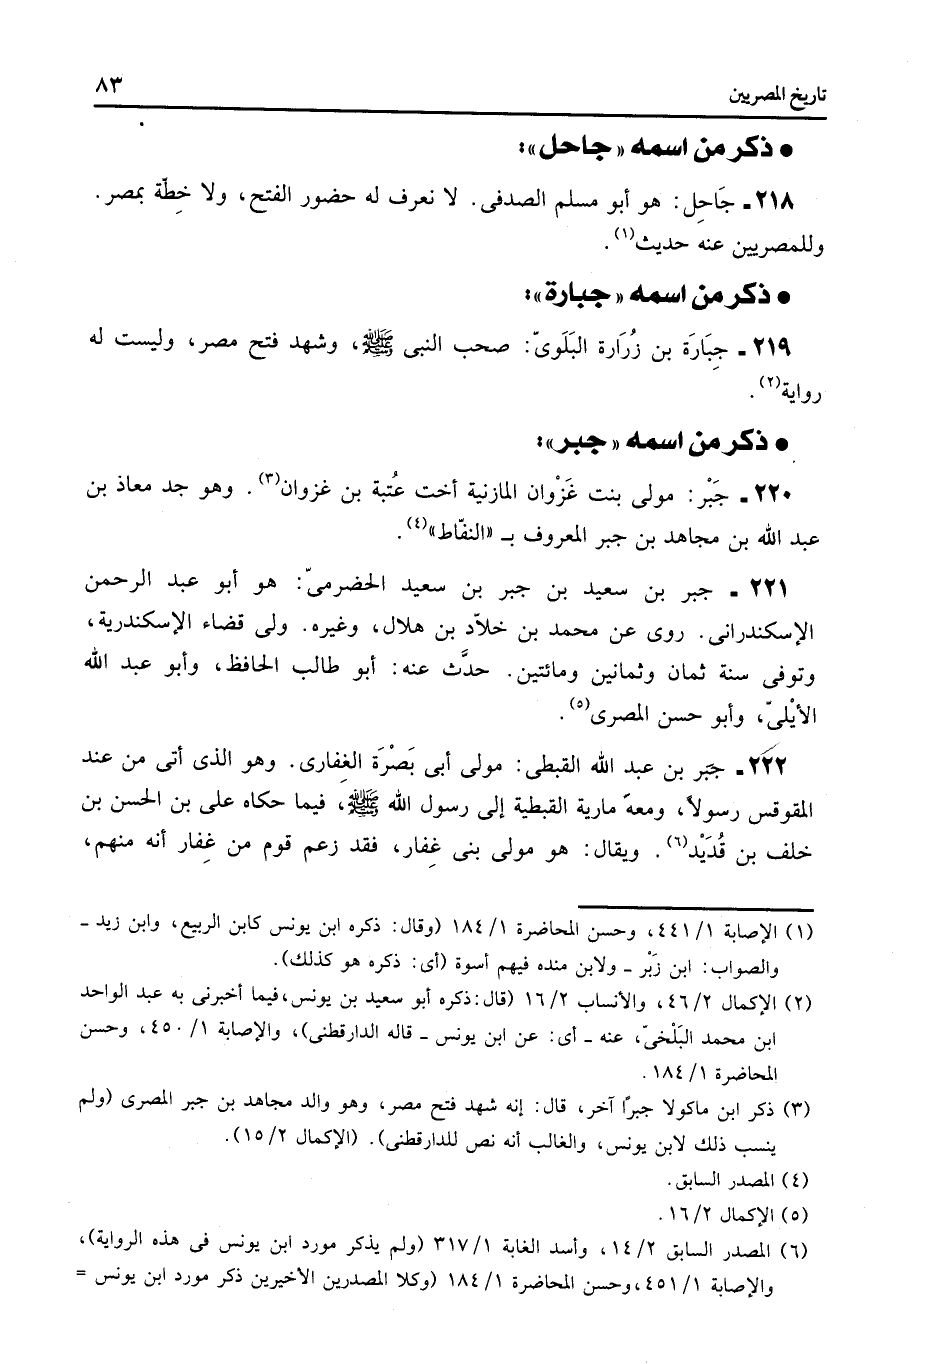 تاريخ المصريين ٨٣
● ذكر من اسمه «جاحل»:
٢١٨ ـ جَاحِل: هو أبو مسلم الصدفى. لا نعرف له حضور الفتح، ولا خِطّة بمصر.
وللمصريين عنه حديث(١).
● ذكر من اسمه «جبارة»:
٢١٩ ـ جِبَارَة بن زُرَارة البَلَوىّ: صحب النبى ﷺ، وشهد فتح مصر، وليست له
رواية(٢).
● ذكر من اسمه «جبر»:
٢٢٠ ـ جَبْر: مولى بنت غَزْوان المازنية أخت عُتبة بن غزوان(٣). وهو جد معاذ بن
عبد الله بن مجاهد بن جبر المعروف بـ «النفّاط»(٤).
٢٢١ ـ جبر بن سعيد بن جبر بن سعيد الحضرمىّ: هو أبو عبد الرحمن
الإسكندرانى. روى عن محمد بن خلاّد بن هلال، وغيره. ولى قضاء الإسكندرية،
وتوفى سنة ثمان وثمانين ومائتين. حدَّث عنه: أبو طالب الحافظ، وأبو عبد الله
الأيْلىّ، وأبو حسن المصرى(٥).
٢٢٢ ـ جَبر بن عبد الله القبطى: مولى أبى بَصْرَة الغِفارى. وهو الذى أتى من عند
المقوقس رسولاً، ومعه مارية القبطية إلى رسول الله ﷺ، فيما حكاه على بن الحسن بن
خلف بن قُدَيْد(٦). ويقال: هو مولى بنى غِفار، فقد زعم قوم من غِفار أنه منهم،
(١) الإصابة ١/ ٤٤١، وحسن المحاضرة ١/ ١٨٤ (وقال: ذكره ابن يونس كابن الربيع، وابن زيد ـ
والصواب: ابن زَبْر ـ ولابن منده فيهم أسوة (أى: ذكره هو كذلك).
(٢) الإكمال ٢/ ٤٦، والأنساب ٢/ ١٦ (قال: ذكره أبو سعيد بن يونس، فيما أخبرنى به عبد الواحد
ابن محمد البَلْخىّ، عنه ـ أى: عن ابن يونس ـ قاله الدارقطنى)، والإصابة ١/ ٤٥٠، وحسن
المحاضرة ١/ ١٨٤.
(٣) ذكر ابن ماكولا جبرًا آخر، قال: إنه شهد فتح مصر، وهو والد مجاهد بن جبر المصرى (ولم
ينسب ذلك لابن يونس، والغالب أنه نص للدارقطنى). (الإكمال ٢/ ١٥).
(٤) المصدر السابق.
(٥) الإكمال ٢/ ١٦.
(٦) المصدر السابق ٢/ ١٤، وأسد الغابة ١/ ٣١٧ (ولم يذكر مورد ابن يونس فى هذه الرواية)،
والإصابة ١/ ٤٥١، وحسن المحاضرة ١/ ١٨٤ (وكلا المصدرين الأخيرين ذكر مورد ابن يونس =